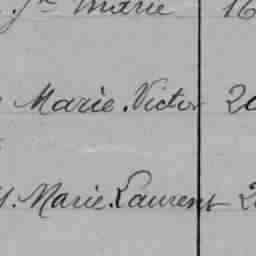 Jn Marie 16
Marie. Victor 20
Marie. Laurent 2